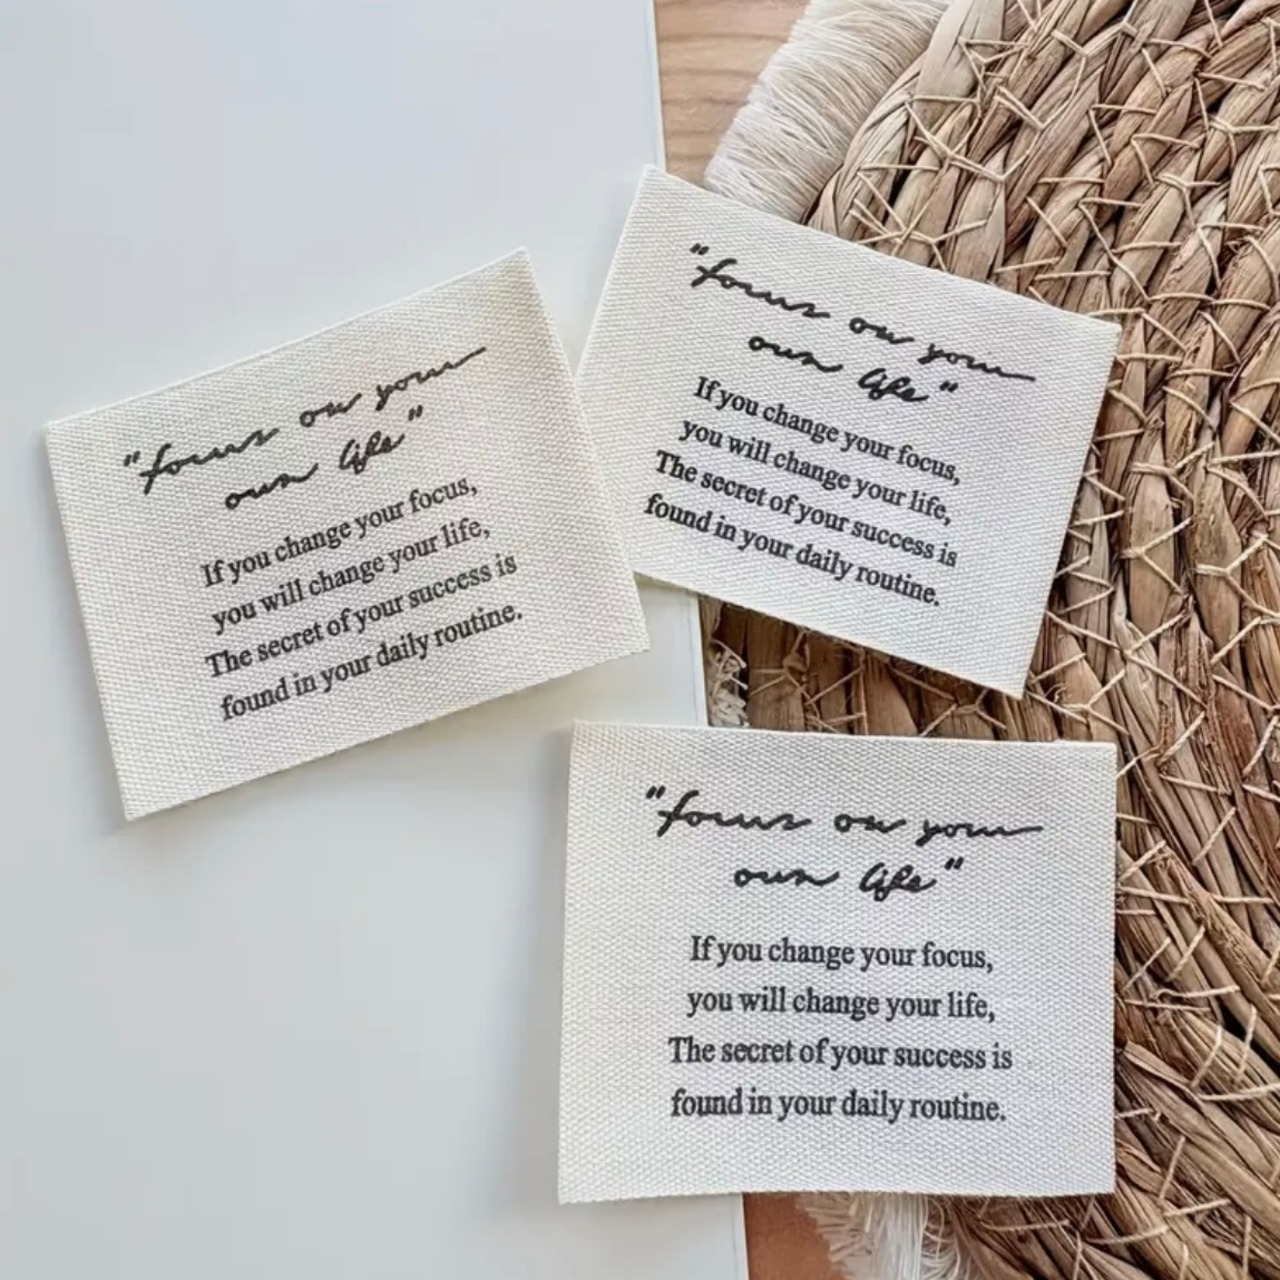 "focus on your
own life"
If you change your focus,
you will change your life,
The secret of your success is
found in your daily routine.
"focus on your
own life"
If you change your focus,
you will change your life,
The secret of your success is
found in your daily routine.
"focus on your
own life"
If you change your focus,
you will change your life,
The secret of your success is
found in your daily routine.